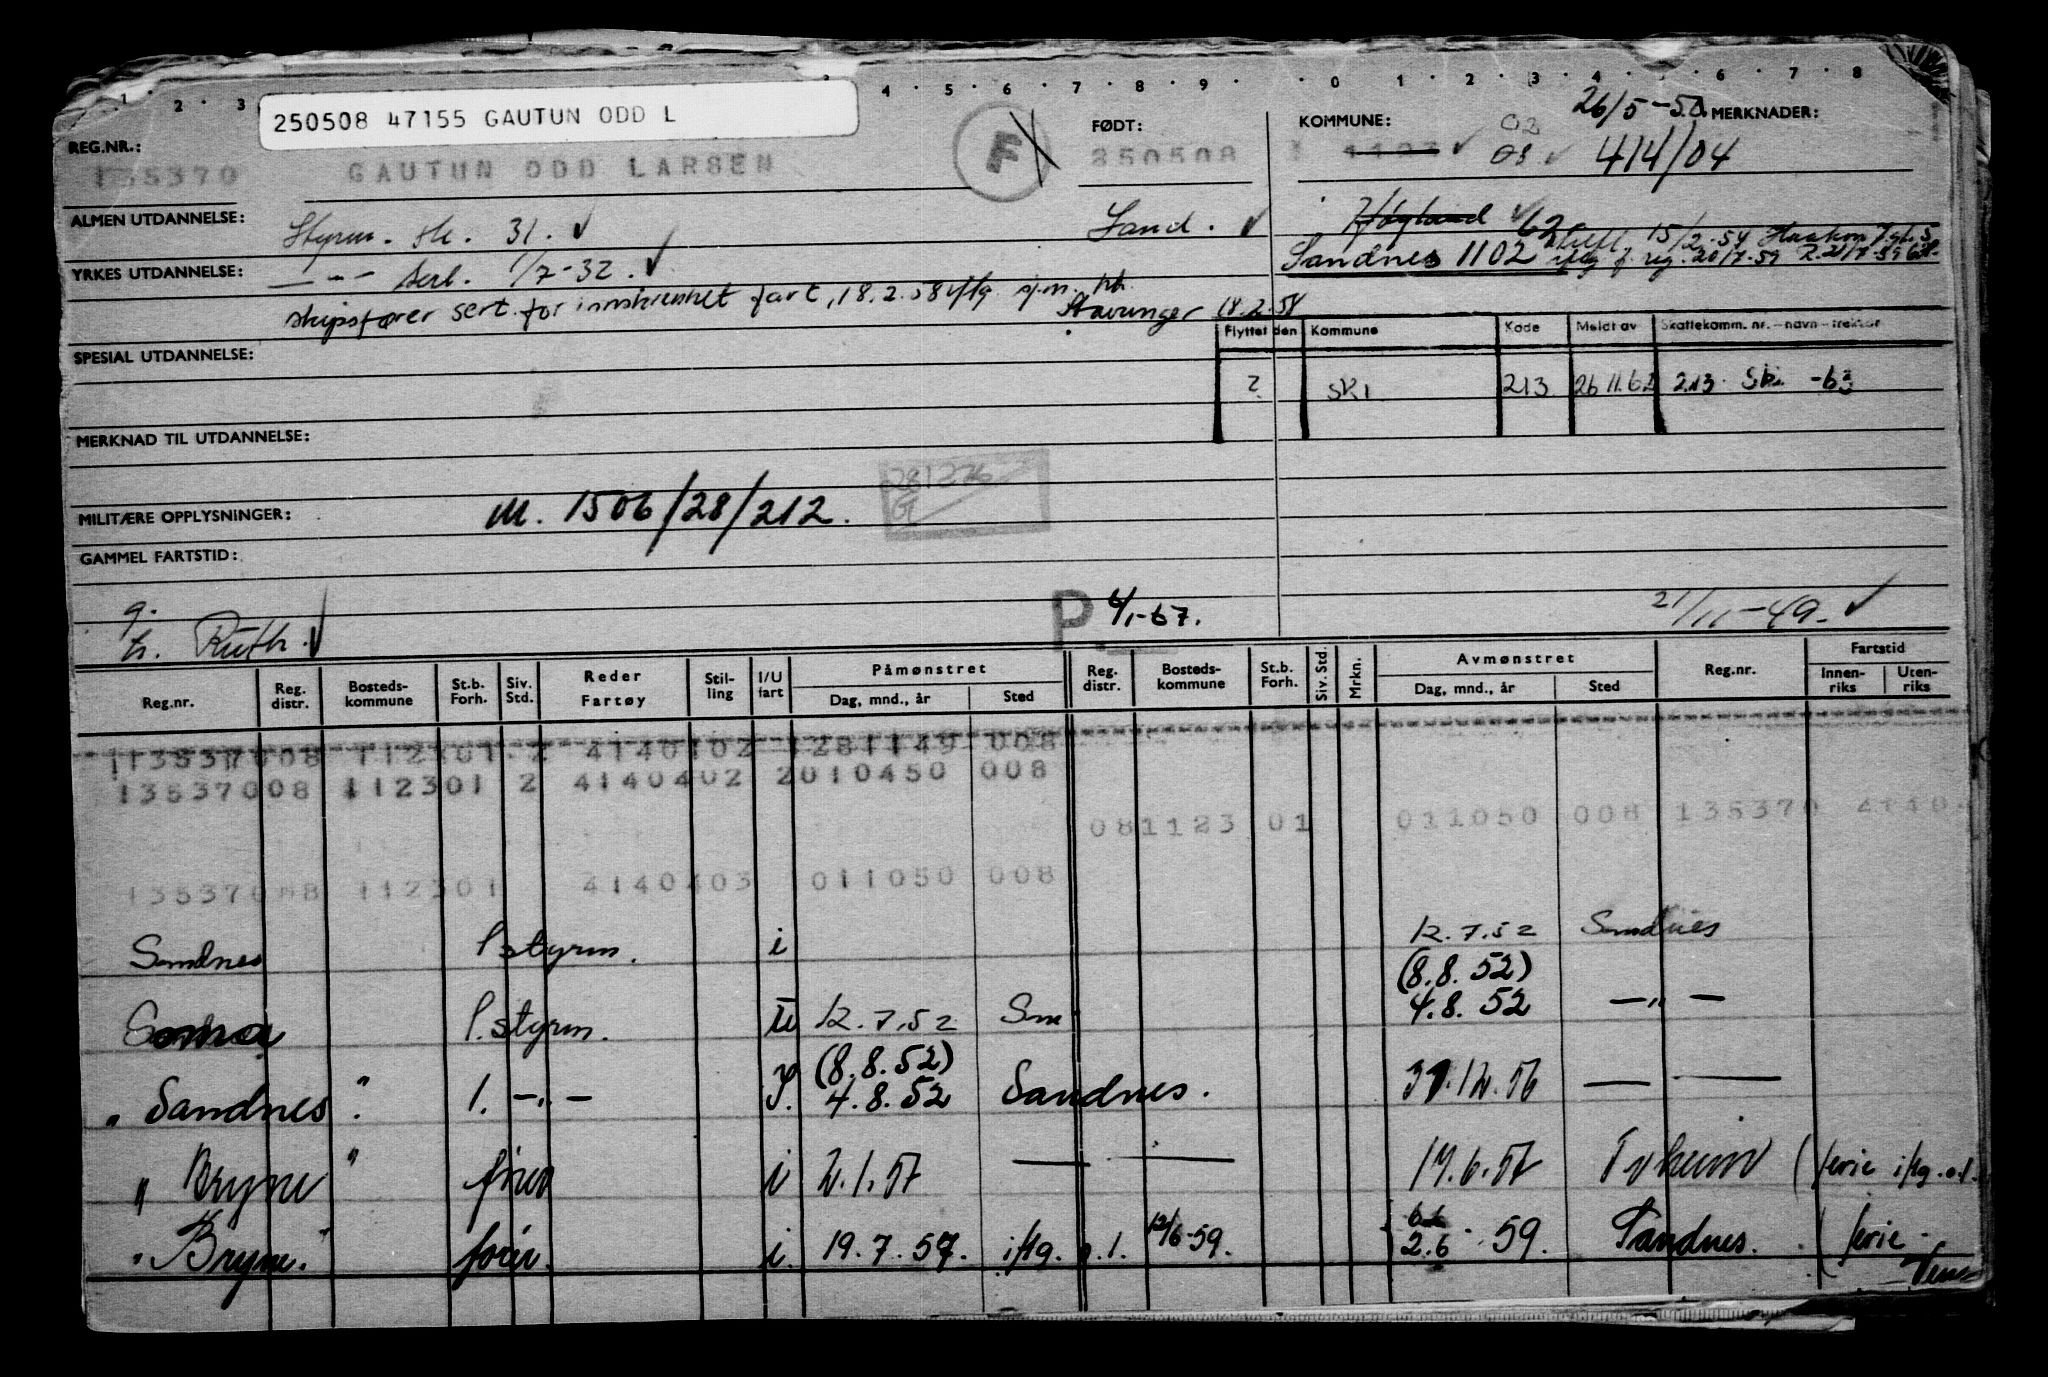 1 · 2 · 3 4 · 5 · 6 · 7 · 8 · 9 · · 0 · 1 · 2 · 3 · 4 · 5 · 6 · 7 · 8
250508 47155 GAUTUN ODD L
REG.NR.: FØDT: KOMMUNE: 02 26/5-50. MERKNADER:
135370 GAUTUN ODD LARSEN F 250508 08 414/04
ALMEN UTDANNELSE: Styrm. sk. 31. Sand. Høyland 62
Sandnes 1102
YRKES UTDANNELSE: — " — sert. 1/7-32.
skipsfører sert. for innskrenket fart, 18.2.58 Stavanger 18.2.58
Flyttet den Kommune Kode Meldt av Skattekomm. nr.–navn–trekkår
SPESIAL UTDANNELSE:
? SKI 213 26 11.62 213 Ski -63
MERKNAD TIL UTDANNELSE:
281226
G
MILITÆRE OPPLYSNINGER: M. 1506/28/212.
GAMMEL FARTSTID:
g.
h. Ruth. P 6/1-67. 21/11-49.
Reg.nr. Reg. distr. Bosteds-kommune St.b. Forh. Siv. Std. Reder Fartøy Stil-ling I/U fart Påmønstret Dag, mnd., år Sted Reg. distr. Bosteds-kommune St.b. Forh. Siv. Std. Mrkn. Avmønstret Dag, mnd., år Sted Reg.nr. Fartstid Innen-riks Uten-riks
13537008 112301 2 4140102 281149 008
13537008 112301 2 4140402 2010450 008
081123 01 011050 008 135370 4140
13537008 112301 4140403 011050 008
Sandnes 1 styrm. i 12.7.52 Sandnes
(8.8.52)
1. styrm. U 12.7.52 Sm 4.8.52 — " —
(8.8.52)
" Sandnes " 1. — " — I. 4.8.52 Sandnes. 31.12.56 — —
" Bryne " fører i 2.1.57 — — 17.6.57 (ferie iflg. o.l.
" Bryne. " fører. i. 19.7.57. iflg. o.l. 12/6-59. 2.6 - 59. Sandnes. (ferie -